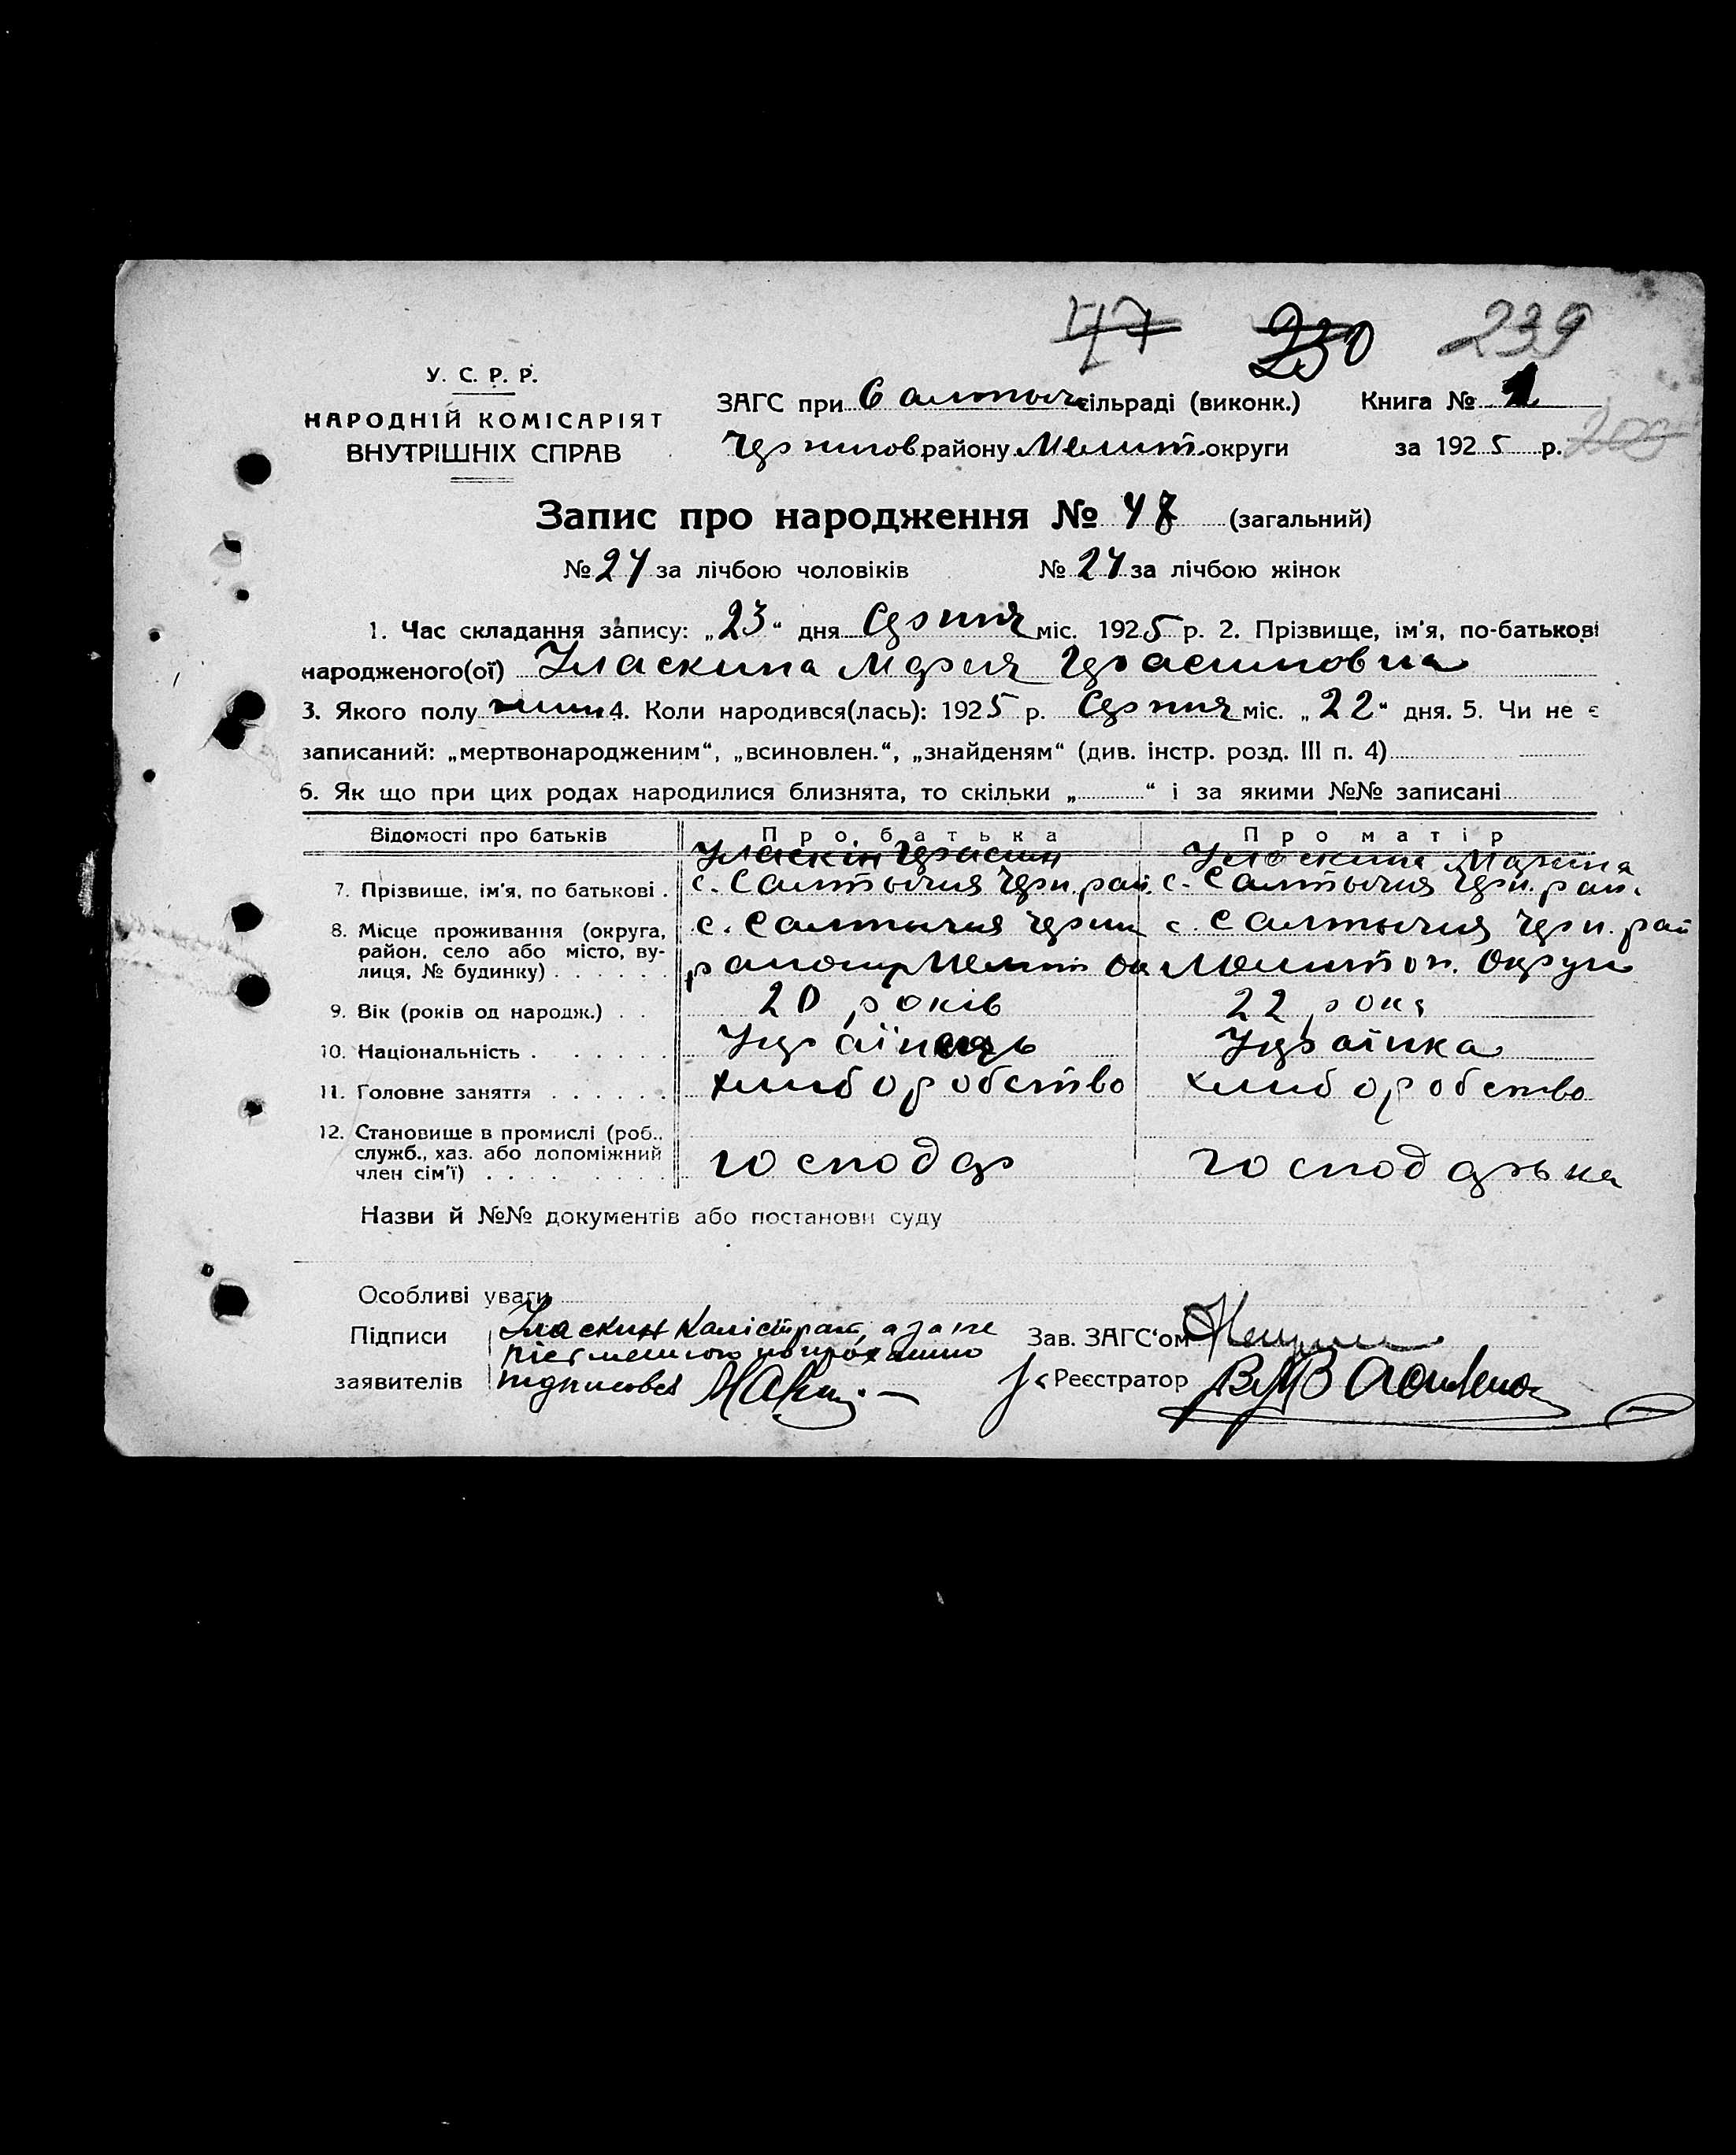 47 230 239
У. С. Р. Р.
НАРОДНІЙ КОМІСАРІЯТ
ВНУТРІШНІХ СПРАВ
ЗАГС при Салтыч сільраді (виконк.) Книга № 1
Чернигов району Мелит. округи за 1925 р. 200
Запис про народження № 48 (загальний)
№ 24 за лічбою чоловіків № 24 за лічбою жінок
1. Час складання запису: „23" дня Серпня міс. 1925 р. 2. Прізвище, ім'я, по-батькові
народженого(ої) Уласкина Мария Герасимовна
3. Якого полу жин 4. Коли народився(лась): 1925 р. Серпня міс. „22" дня. 5. Чи не є
записаний: „мертвонародженим", „всиновлен.", „знайденям" (див. інстр. розд. III п. 4)
6. Як що при цих родах народилися близнята, то скільки „ " і за якими №№ записані
Відомості про батьків Про батька Про матір
Уласкін Герасим Уласкина Марина
7. Прізвище, ім'я, по батькові . с. Салтычия Черн. рай. с. Салтычия Черн. рай.
8. Місце проживання (округа, с. Салтычия Черни с. Салтычия Черн. рай
район, село або місто, ву-
лиця, № будинку) . . . . . . району Мелит Ок Мелитоп. Округи
9. Вік (років од народж.) . . 20 років 22 рокя
10. Національність . . . . . . Українець Українка
11. Головне заняття . . . . . . хлиборобство хлиборобство
12. Становище в промислі (роб.,
служб., хаз. або допоміжний господар господарька
член сім'ї) . . . . . . . .
Назви й №№ документів або постанови суду
Особливі уваги
Підписи Уласкин Калістрат, а за не
письменного по проханню
заявителів підписовся
Зав. ЗАГС'ом
Реєстратор